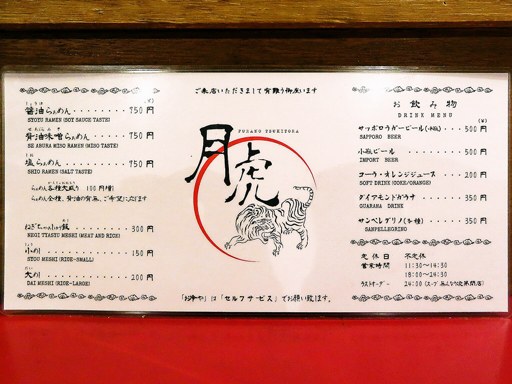 ご来店いただきまして有難う御座います
しょうゆ
醤油らぁめん・・・・・・・・750円
SYOYU RAMEN (SOY SAUCE TASTE)
背油味噌らぁめん・・・・・750円
SE ABURA MISO RAMEN (MISO TASTE)
しお
塩らぁめん・・・・・・・・・750円
SHIO RAMEN (SALT TASTE)
らぁめん各種大盛り 100円増
らぁめん全種、背油の有無、ご希望にしたがいます
300円
NEGI TYASYU MESHI (MEAT AND RICE)
小メシ・・・・・・・・・・・150円
SYOU MESHI (RICE-SMALL)
大メシ・・・・・・・・・・・200円
DAI MESHI (RICE-LARGE)
FURABO TSUKITORA
月虎
「お冷や」は「セルフサービス」でお願い致します。
お飲み物
DRINK MENU
サッポロラガービール(小瓶)・・・500円
SAPPORO BEER
小瓶ビール・・・・・・・・・500円
IMPORT BEER
コーラ・オレンジジュース・・・・200円
SOFT DRINK (COKE/ORANGE)
ダイアモンドガラナ・・・・・350円
GUARANA DRINK
サンペレグリノ(各種)・・・350円
SANPELLEGRINO
定休日 不定休
営業時間 11:30〜14:30
18:00〜24:30
ラストオーダー 24:00